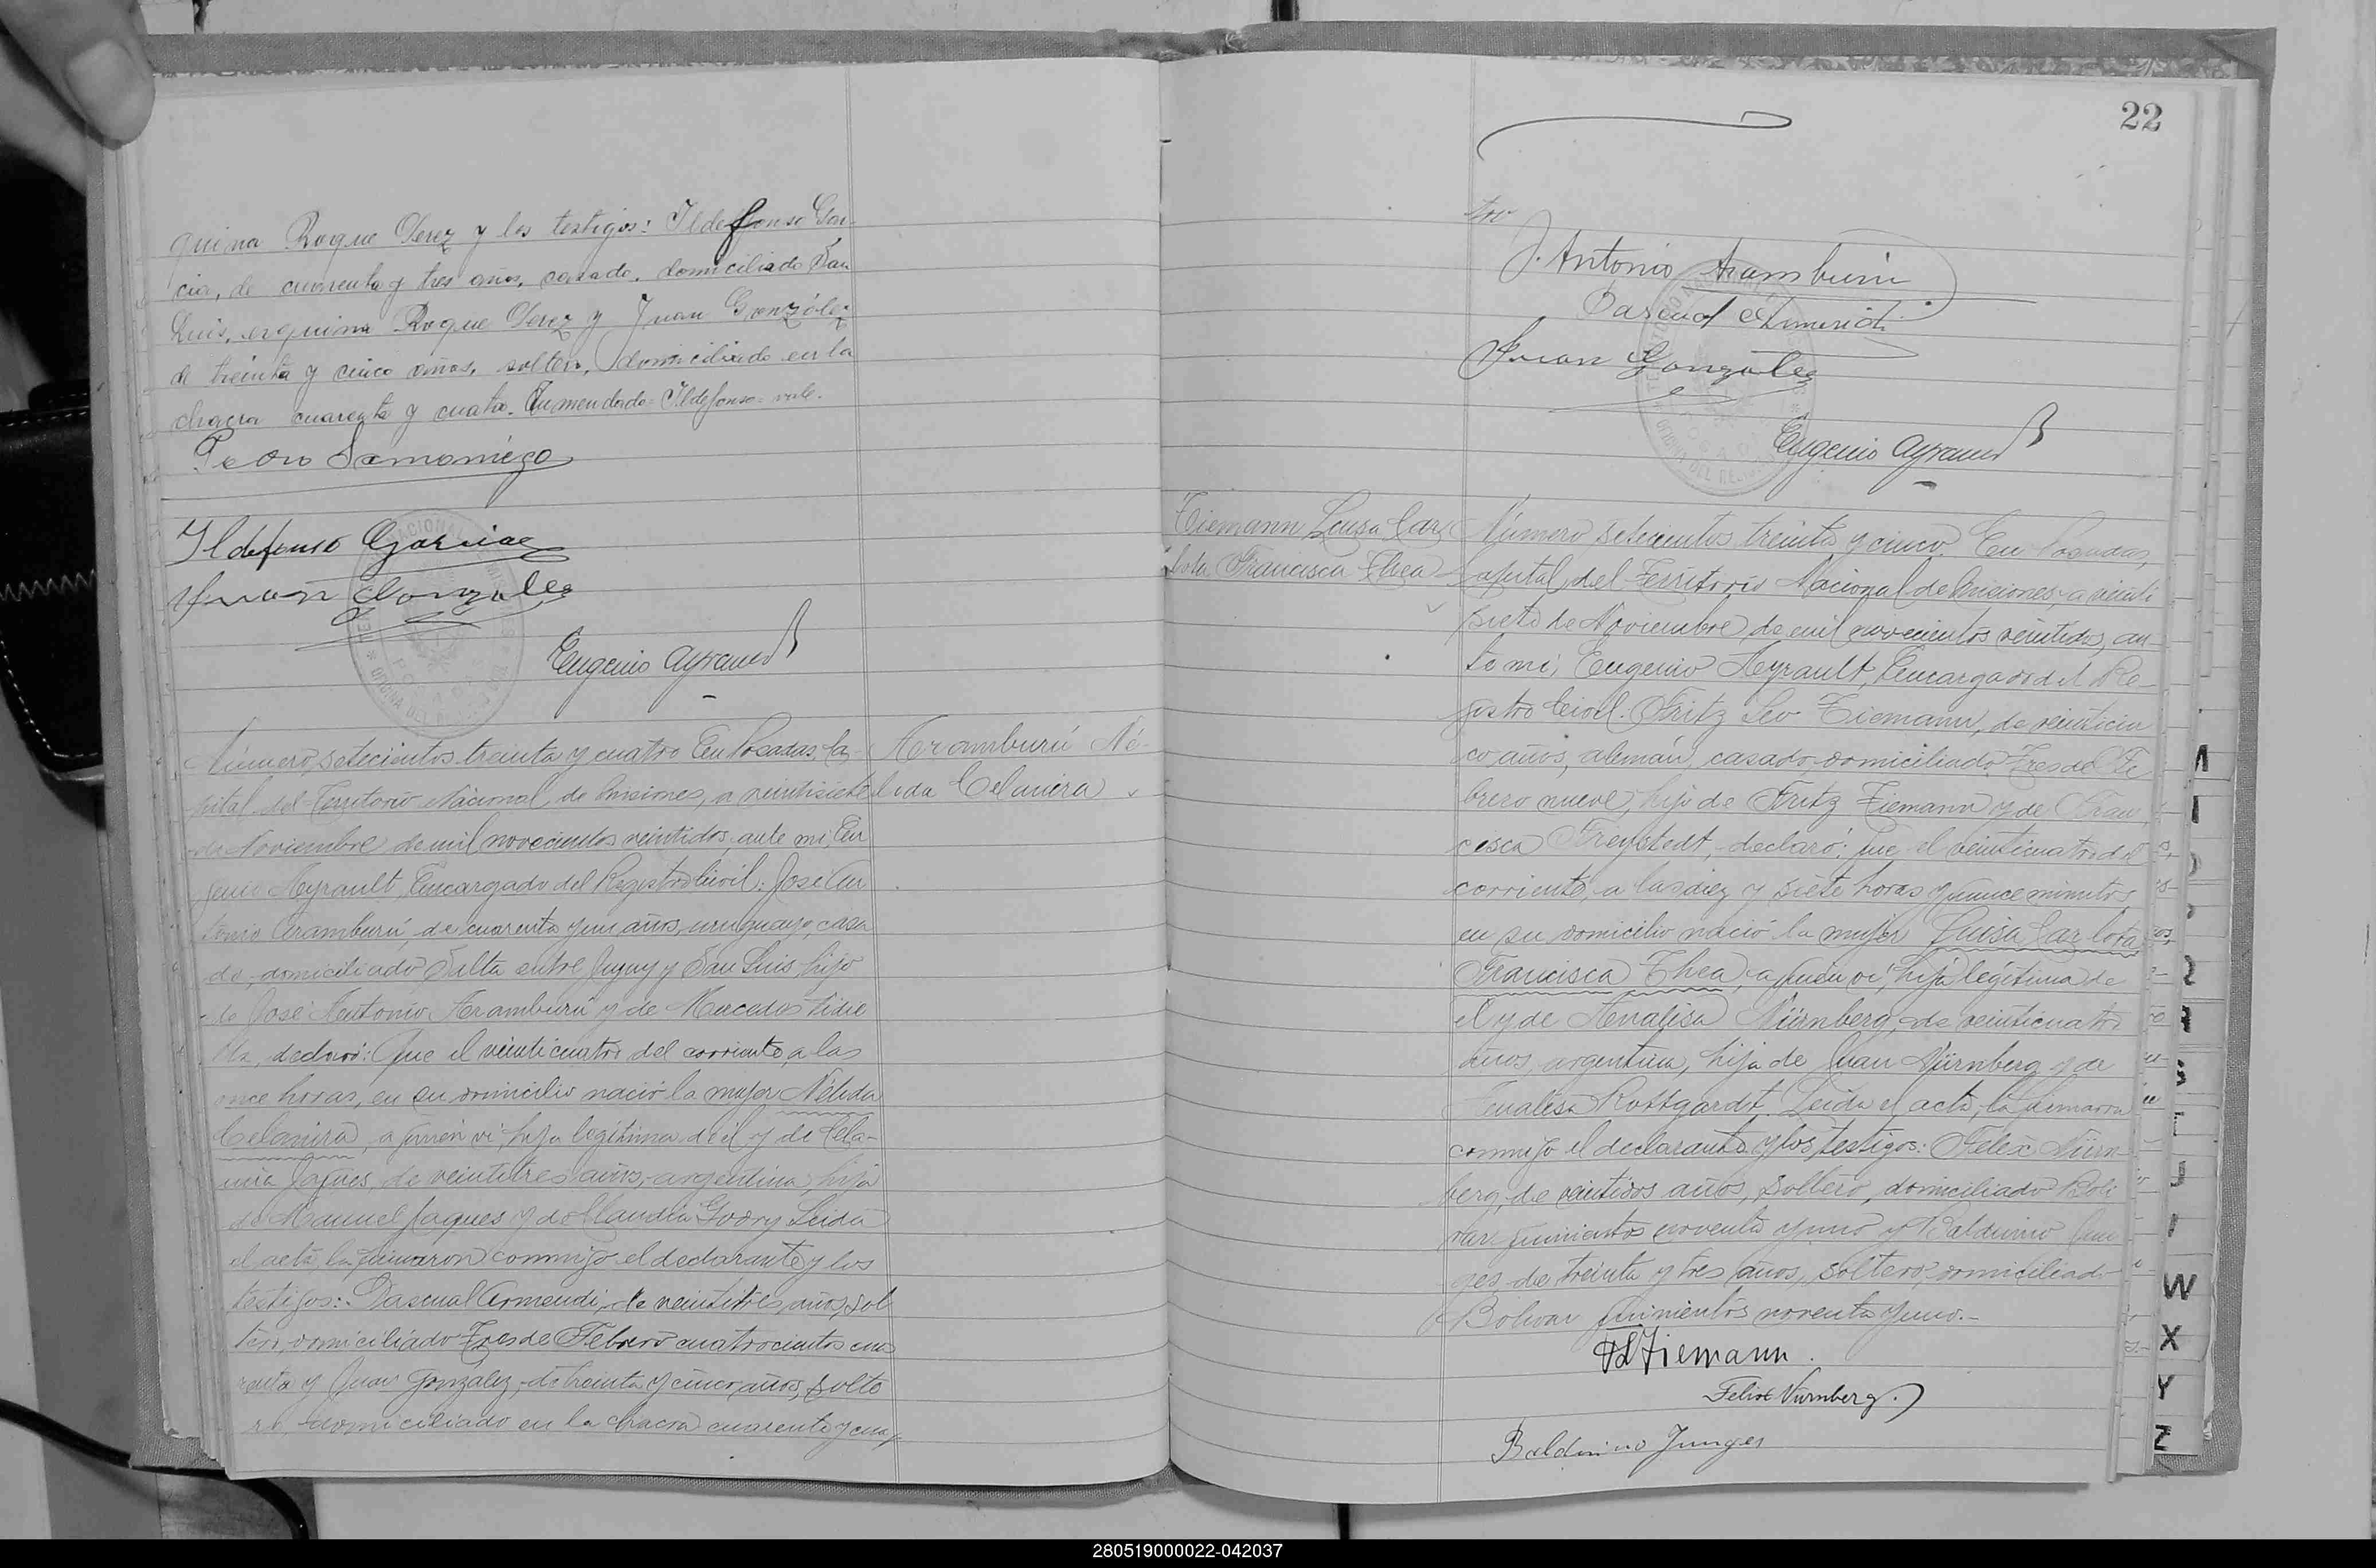 quina Roque Perez y los testigos: Ildefonso Gar-
cia, de cuarenta y tres años, casado, domiciliado San
Luis, esquina Roque Perez y Juan González
de treinta y cinco años, soltero, domiciliado en la
chacra cuarenta y cuatro. Enmendado=Ildefonso=vale.
Pedro Samaniego
Ildefonso Garcia
Juan Gonzales
Eugenio Ayrault
Número setecientos treinta y cuatro En Posadas, Ca-
pital del Territorio Nacional de Misiones, a veintisiete
de Noviembre de mil novecientos veintidos, ante mi, Eu
genio Ayrault, Encargado del Registro Civil: José An
tonio Aramburú, de cuarenta y un años, uruguayo, casa
do, domiciliado Salta entre Jujuy y San Luis, hijo
de José Antonio Aramburú y de Mercedes
declaró: Que el veinticuatro del corriente, a las
once horas, en su domicilio nació la mujer Nélida
Celanira, a quien vi, hija legítima de él y de Cela-
nira Jaques, de veintitres años, argentina, hija
de Manuel Jaques y de Claudia Godoy Leida
el acta, la firmaron conmigo el declarante y los
testigos: Pascual Armendi, de veintitrés años, sol
tero, domiciliado Tres de Febrero cuatrocientos cua
renta y Juan Gonzalez, de treinta y cinco años, solte
ro, domiciliado en la chacra cuarenta y cua
Aramburú Né-
lida Celanira
22
tro
J. Antonio Aramburú
Pascual Armendi
Juan Gonzales
Eugenio Ayrault
Tiemann Luisa Car
lota Francisca Thea
Número setecientos treinta y cinco. En Posadas,
Capital del Territorio Nacional de Misiones, a veinti
siete de Noviembre de mil novecientos veintidos, an
te mi, Eugenio Ayrault, Encargado del Re-
gistro Civil: Fritz Leo Tiemann, de veinticin
co años, alemán, casado, domiciliado Tres de Fe
brero nueve, hijo de Fritz Tiemann y de Fran
cisca Freystedt, declaró: Que el veinticuatro del
corriente, a las diez y siete horas y quince minutos,
en su domicilio nació la mujer Luisa Carlota
Francisca Thea, a quien vi, hija legítima de
el y de Analisa Nürnberg, de veinticuatro
años, argentina, hija de Juan Nürnberg y de
Analisa Rottgardt. Leida el acta, la firmaron
conmigo el declarante y los testigos: Felix Nürn-
berg, de veintidos años, soltero, domiciliado Boli
var quinientos noventa y uno y Balduino Jun
ges, de treinta y tres años, soltero, domiciliado
Bolivar quinientos noventa y uno.-
FLTiemann.
Felix Nürnberg.
Balduino Junges
W
X
Y
Z
280519000022-042037